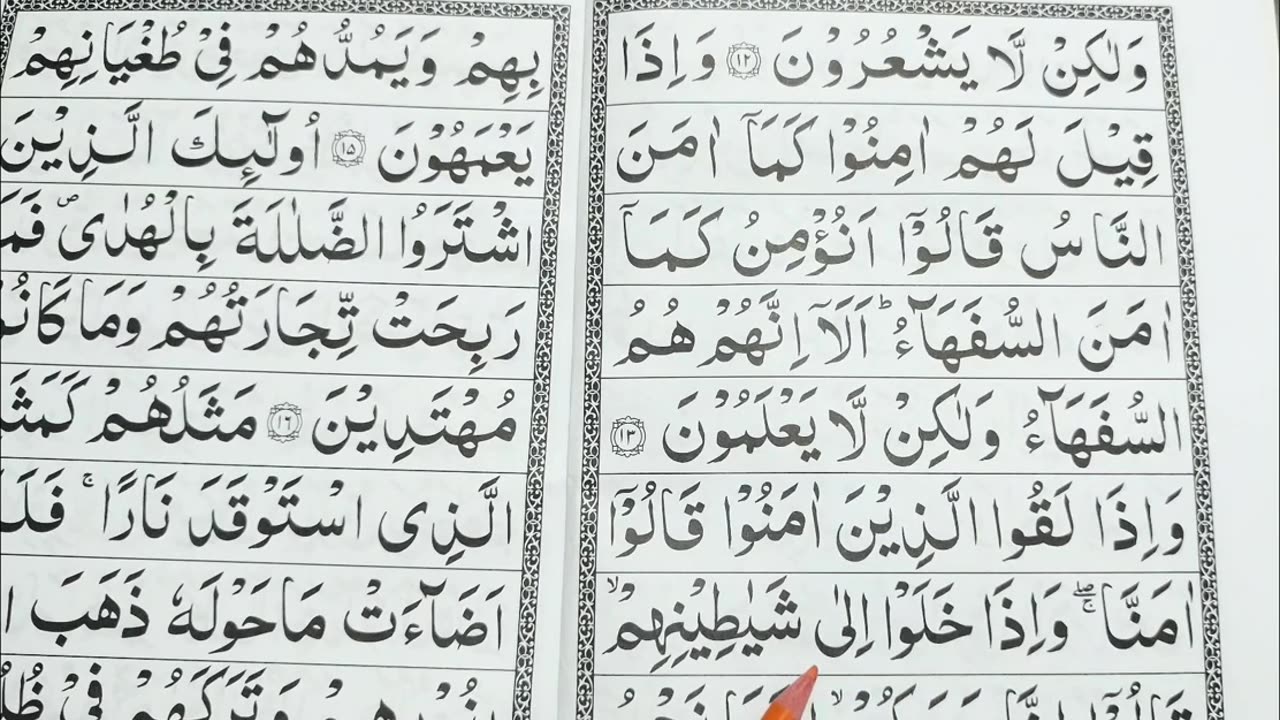 وَلٰكِنْ لَّا يَشْعُرُوْنَ ۝۱۲ وَاِذَا
قِيْلَ لَهُمْ اٰمِنُوْا كَمَاۤ اٰمَنَ
النَّاسُ قَالُوْۤا اَنُؤْمِنُ كَمَاۤ
اٰمَنَ السُّفَهَآءُ ؕ اَلَاۤ اِنَّهُمْ هُمُ
السُّفَهَآءُ وَلٰكِنْ لَّا يَعْلَمُوْنَ ۝۱۳
وَاِذَا لَقُوا الَّذِيْنَ اٰمَنُوْا قَالُوْۤا
اٰمَنَّا ۖۚ وَاِذَا خَلَوْا اِلٰى شَيٰطِيْنِهِمْ ۙ
بِهِمْ وَيَمُدُّهُمْ فِيْ طُغْيَانِهِمْ
يَعْمَهُوْنَ ۝۱۵ اُولٰٓئِكَ الَّذِيْنَ
اشْتَرَوُا الضَّلٰلَةَ بِالْهُدٰى ۪
رَبِحَتْ تِّجَارَتُهُمْ وَمَا كَانُوْ
مُهْتَدِيْنَ ۝۱۶ مَثَلُهُمْ
الَّذِى اسْتَوْقَدَ نَارًا ۚ
اَضَآءَتْ مَاحَوْلَهٗ ذَهَبَ